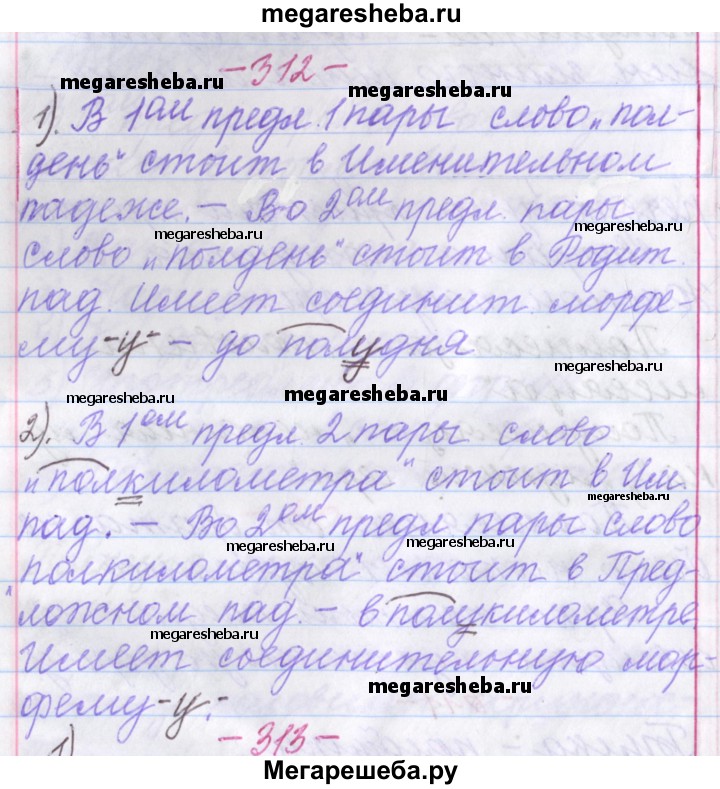 megaresheba.ru
-312-
megaresheba.ru
megaresheba.ru
1). В 1ом предл. 1 пары слово „пол-
день“ стоит в Именительном
падеже. – Во 2ом предл. пары
megaresheba.ru
megaresheba.ru
слово „полдень“ стоит в Родит.
пад. Имеет соединит. морфе-
му -у- – до полудня
megaresheba.ru
megaresheba.ru
megaresheba.ru
megaresheba.ru
2). В 1ом предл. 2 пары слово
„полкилометра“ стоит в Им.
megaresheba.ru
пад. – Во 2ом предл. пары слово
megaresheba.ru
megaresheba.ru
„полкилометра“ стоит в Пред-
ложном пад. – в полукилометре.
megaresheba.ru
Имеет соединительную мор-
megaresheba.ru
фему -у-.
-313-
1)
Мегарешеба.ру